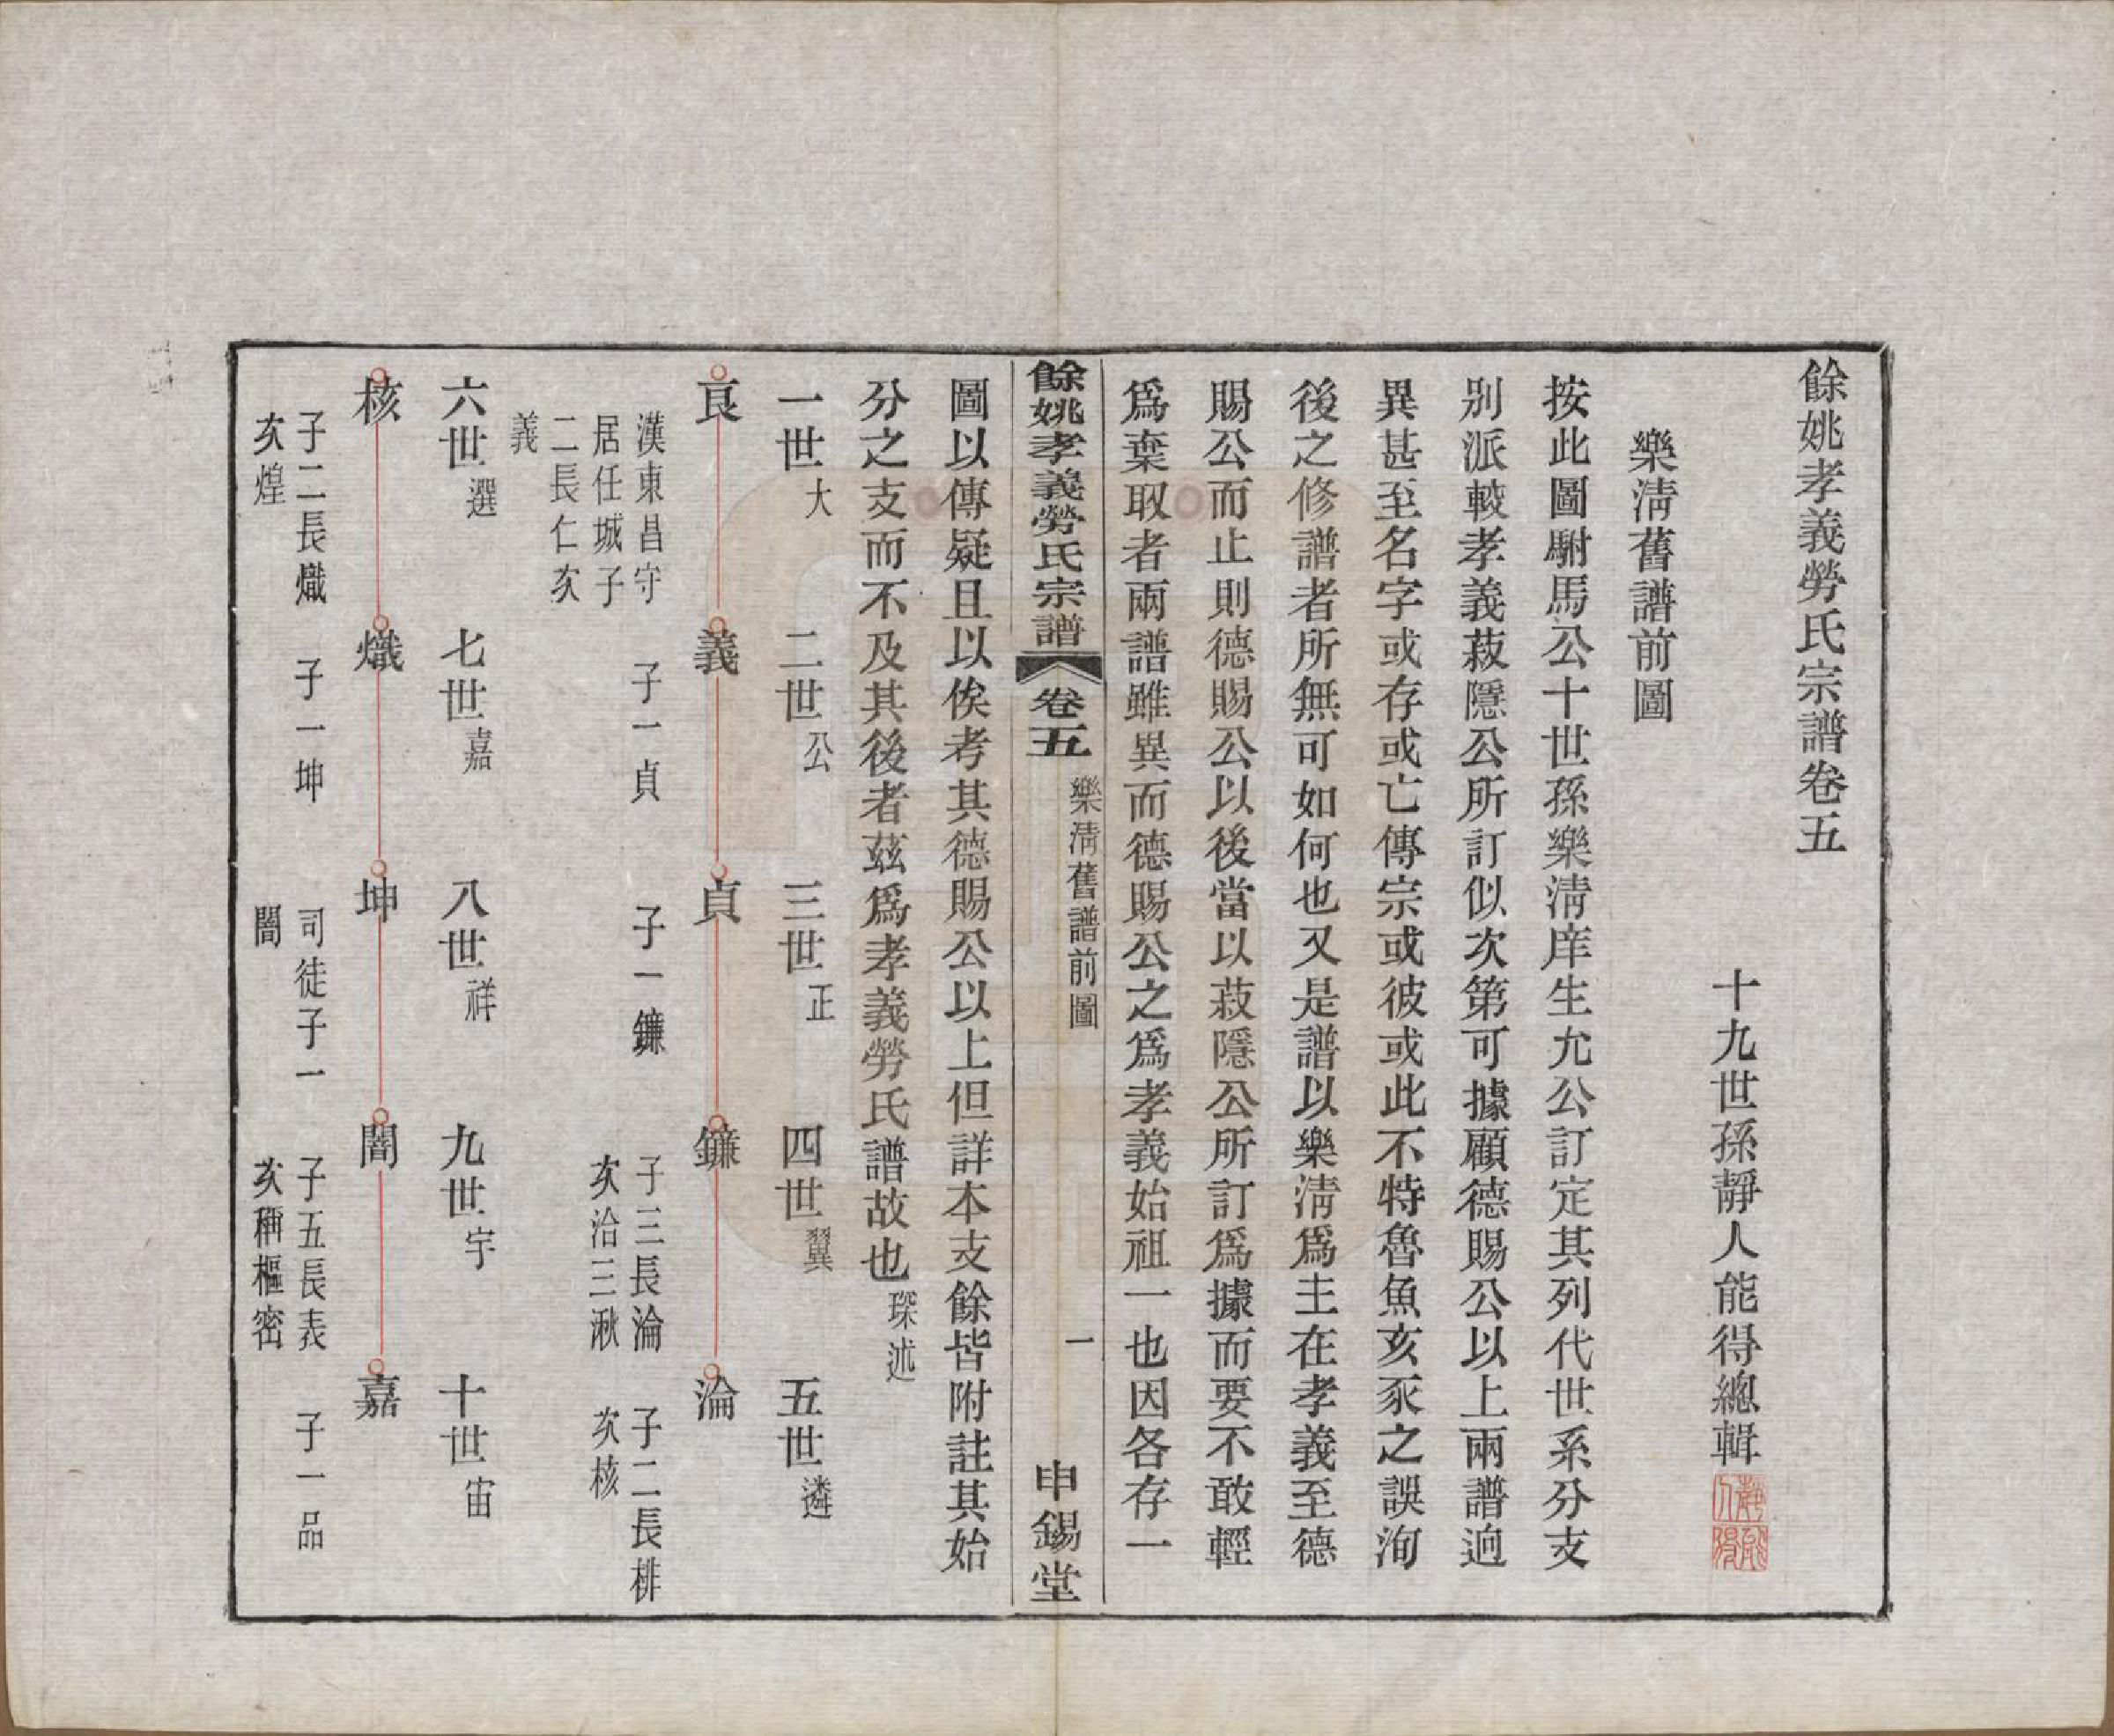 餘姚孝義勞氏宗譜卷五
十九世孫靜人能得總輯
樂淸舊譜前圖
按此圖駙馬公十世孫樂淸庠生允公訂定其列代世系分支
別派較孝義菽隱公所訂似次第可據顧德賜公以上兩譜逈
異甚至名字或存或亡傳宗或彼或此不特魯魚亥豕之誤洵
後之修譜者所無可如何也又是譜以樂淸爲主在孝義至德
賜公而止則德賜公以後當以菽隱公所訂爲據而要不敢輕
爲棄取者兩譜雖異而德賜公之爲孝義始祖一也因各存一
餘姚孝義勞氏宗譜 卷五 樂淸舊譜前圖 一 申錫堂
圖以傳疑且以俟考其德賜公以上但詳本支餘皆附註其始
分之支而不及其後者茲爲孝義勞氏譜故也 琛述
一世 大 二世 公 三世 正 四世 翼 五世 遴
㫐 義 貞 鐮 淪
漢東昌守 子一貞 子一鐮 子三長淪 子二長棑
居任城子 次治三湫 次核
二長仁次
義
六世 選 七世 嘉 八世 祥 九世 宇 十世 宙
核 熾 坤 闇 嘉
子二長熾 子一坤 司徒子一 子五長表 子一品
次煌 闇 次稱樞密